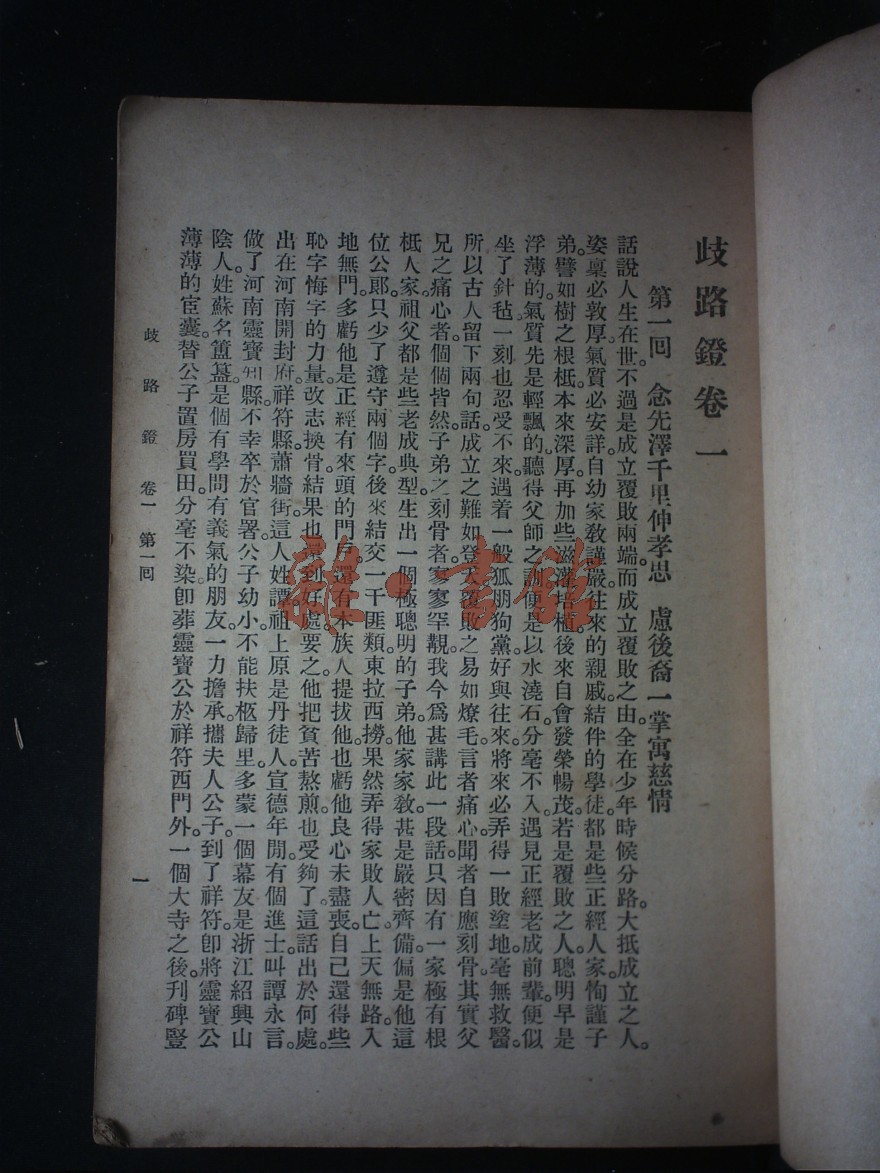 歧路鐙卷一
第一回 念先澤千里伸孝思 慮後裔一掌寓慈情
話說人生在世。不過是成立覆敗兩端。而成立覆敗之由。全在少年時候分路。大抵成立之人。
姿稟必敦厚。氣質必安詳。自幼家敎謹嚴。往來的親戚。結伴的學徒。都是些正經人家。恂謹子
弟。譬如樹之根柢。本來深厚。再加些滋灌培植。後來自會發榮暢茂。若是覆敗之人。聰明早是
浮薄的。氣質先是輕飄的。聽得父師之訓。便是以水澆石。分毫不入。遇見正經老成前輩。便似
坐了針毡。一刻也忍受不來。遇着一般狐朋狗黨。好與往來。將來必弄得一敗塗地。毫無救醫。
所以古人留下兩句話。成立之難如登天。覆敗之易如燎毛。言者痛心。聞者自應刻骨。其實父
兄之痛心者。個個皆然。子弟之刻骨者。寥寥罕覯。我今爲甚講此一段話。只因有一家極有根
柢人家。祖父都是些老成典型。生出一個極聰明的子弟。他家家敎。甚是嚴密齊備。偏是他這
位公郞。只少了遵守兩個字。後來結交一干匪類。東拉西撈。果然弄得家敗人亡。上天無路。入
地無門。多虧他是正經有來頭的門戶。還有本族人提拔他。也虧他良心未盡喪。自己還得些
恥字悔字的力量。改志換骨。結果也還到好處。要之他把貧苦熬煎。也受夠了。這話出於何處。
出在河南開封府。祥符縣蕭牆街。這人姓譚。祖上原是丹徒人。宣德年閒。有個進士。叫譚永言。
做了河南靈寶知縣。不幸卒於官署。公子幼小。不能扶柩歸里。多蒙一個幕友。是浙江紹興山
陰人。姓蘇名簠簋。是個有學問有義氣的朋友。一力擔承。攜夫人公子。到了祥符。卽將靈寶公
薄薄的宦囊。替公子置房買田。分毫不染。卽葬靈寶公於祥符西門外。一個大寺之後。刋碑豎
歧路鐙 卷一 第一回
一
雜·書館